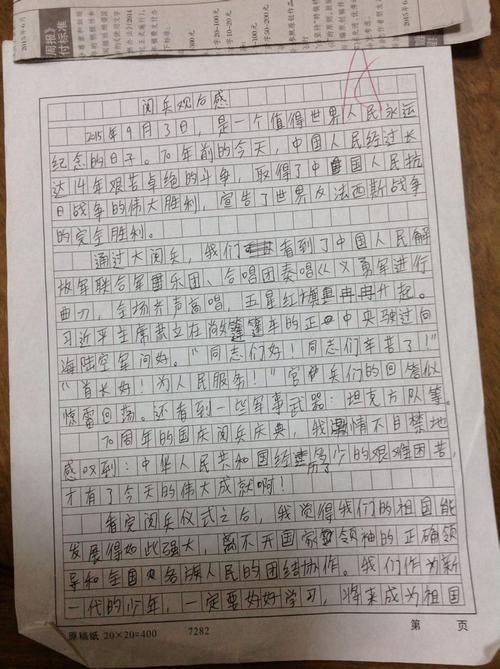 2015年6月
周报》
付标准
100元
字20-100元
字10-20元
字50-200元
2015年6月
A
阅兵观后感
2015年9月3日，是一个值得世界人民永远
纪念的日子。70年前的今天，中国人民经过长
达14年艰苦卓绝的斗争，取得了中国人民抗
日战争的伟大胜利，宣告了世界反法西斯战争
的完全胜利。
通过大阅兵，我们看到了中国人民解
放军联合军乐团、合唱团奏唱《义勇军进行
曲》，全场齐声高唱，五星红旗冉冉升起。
习近平主席站立在敞篷车的正中央驶过向
海陆空军问好。“同志们好！同志们辛苦了！”
“首长好！为人民服务！”官兵们的回答似
惊雷回荡。还看到一些军事武器：坦克方队等。
70周年的国庆阅兵庆典，我激情不自禁地
感叹到：中华人民共和国经历了多少的艰难困苦，
才有了今天的伟大成就啊！
看完阅兵仪式之后，我觉得我们的祖国能
发展得如此强大，离不开国家领袖的正确领
导和全国各族人民的团结协作。我们作为新
一代的少年，一定要好好学习，将来成为祖国
原稿纸 20×20=400 7282 第 页